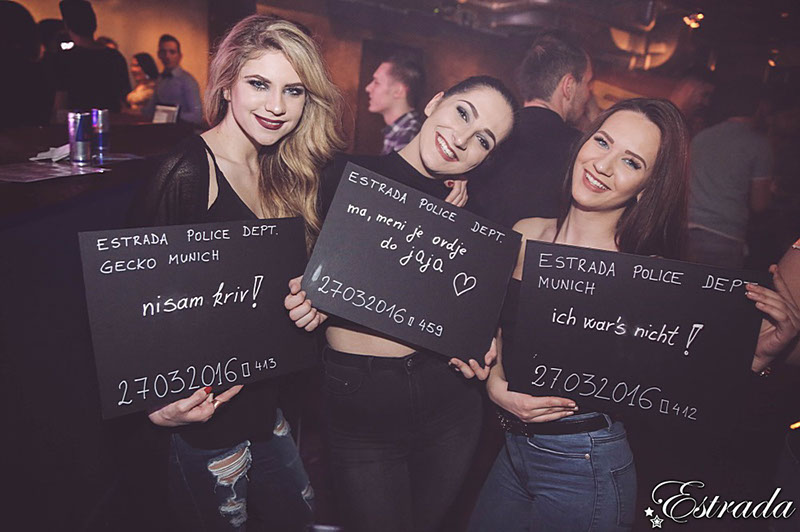 ESTRADA POLICE DEPT.
GECKO MUNICH
nisam kriv!
27032016 413
ESTRADA POLICE DEPT.
ma, meni je ovdje
do jaja
27032016 459
ESTRADA POLICE DEPT.
MUNICH
ich war's nicht!
27032016 412
Estrada